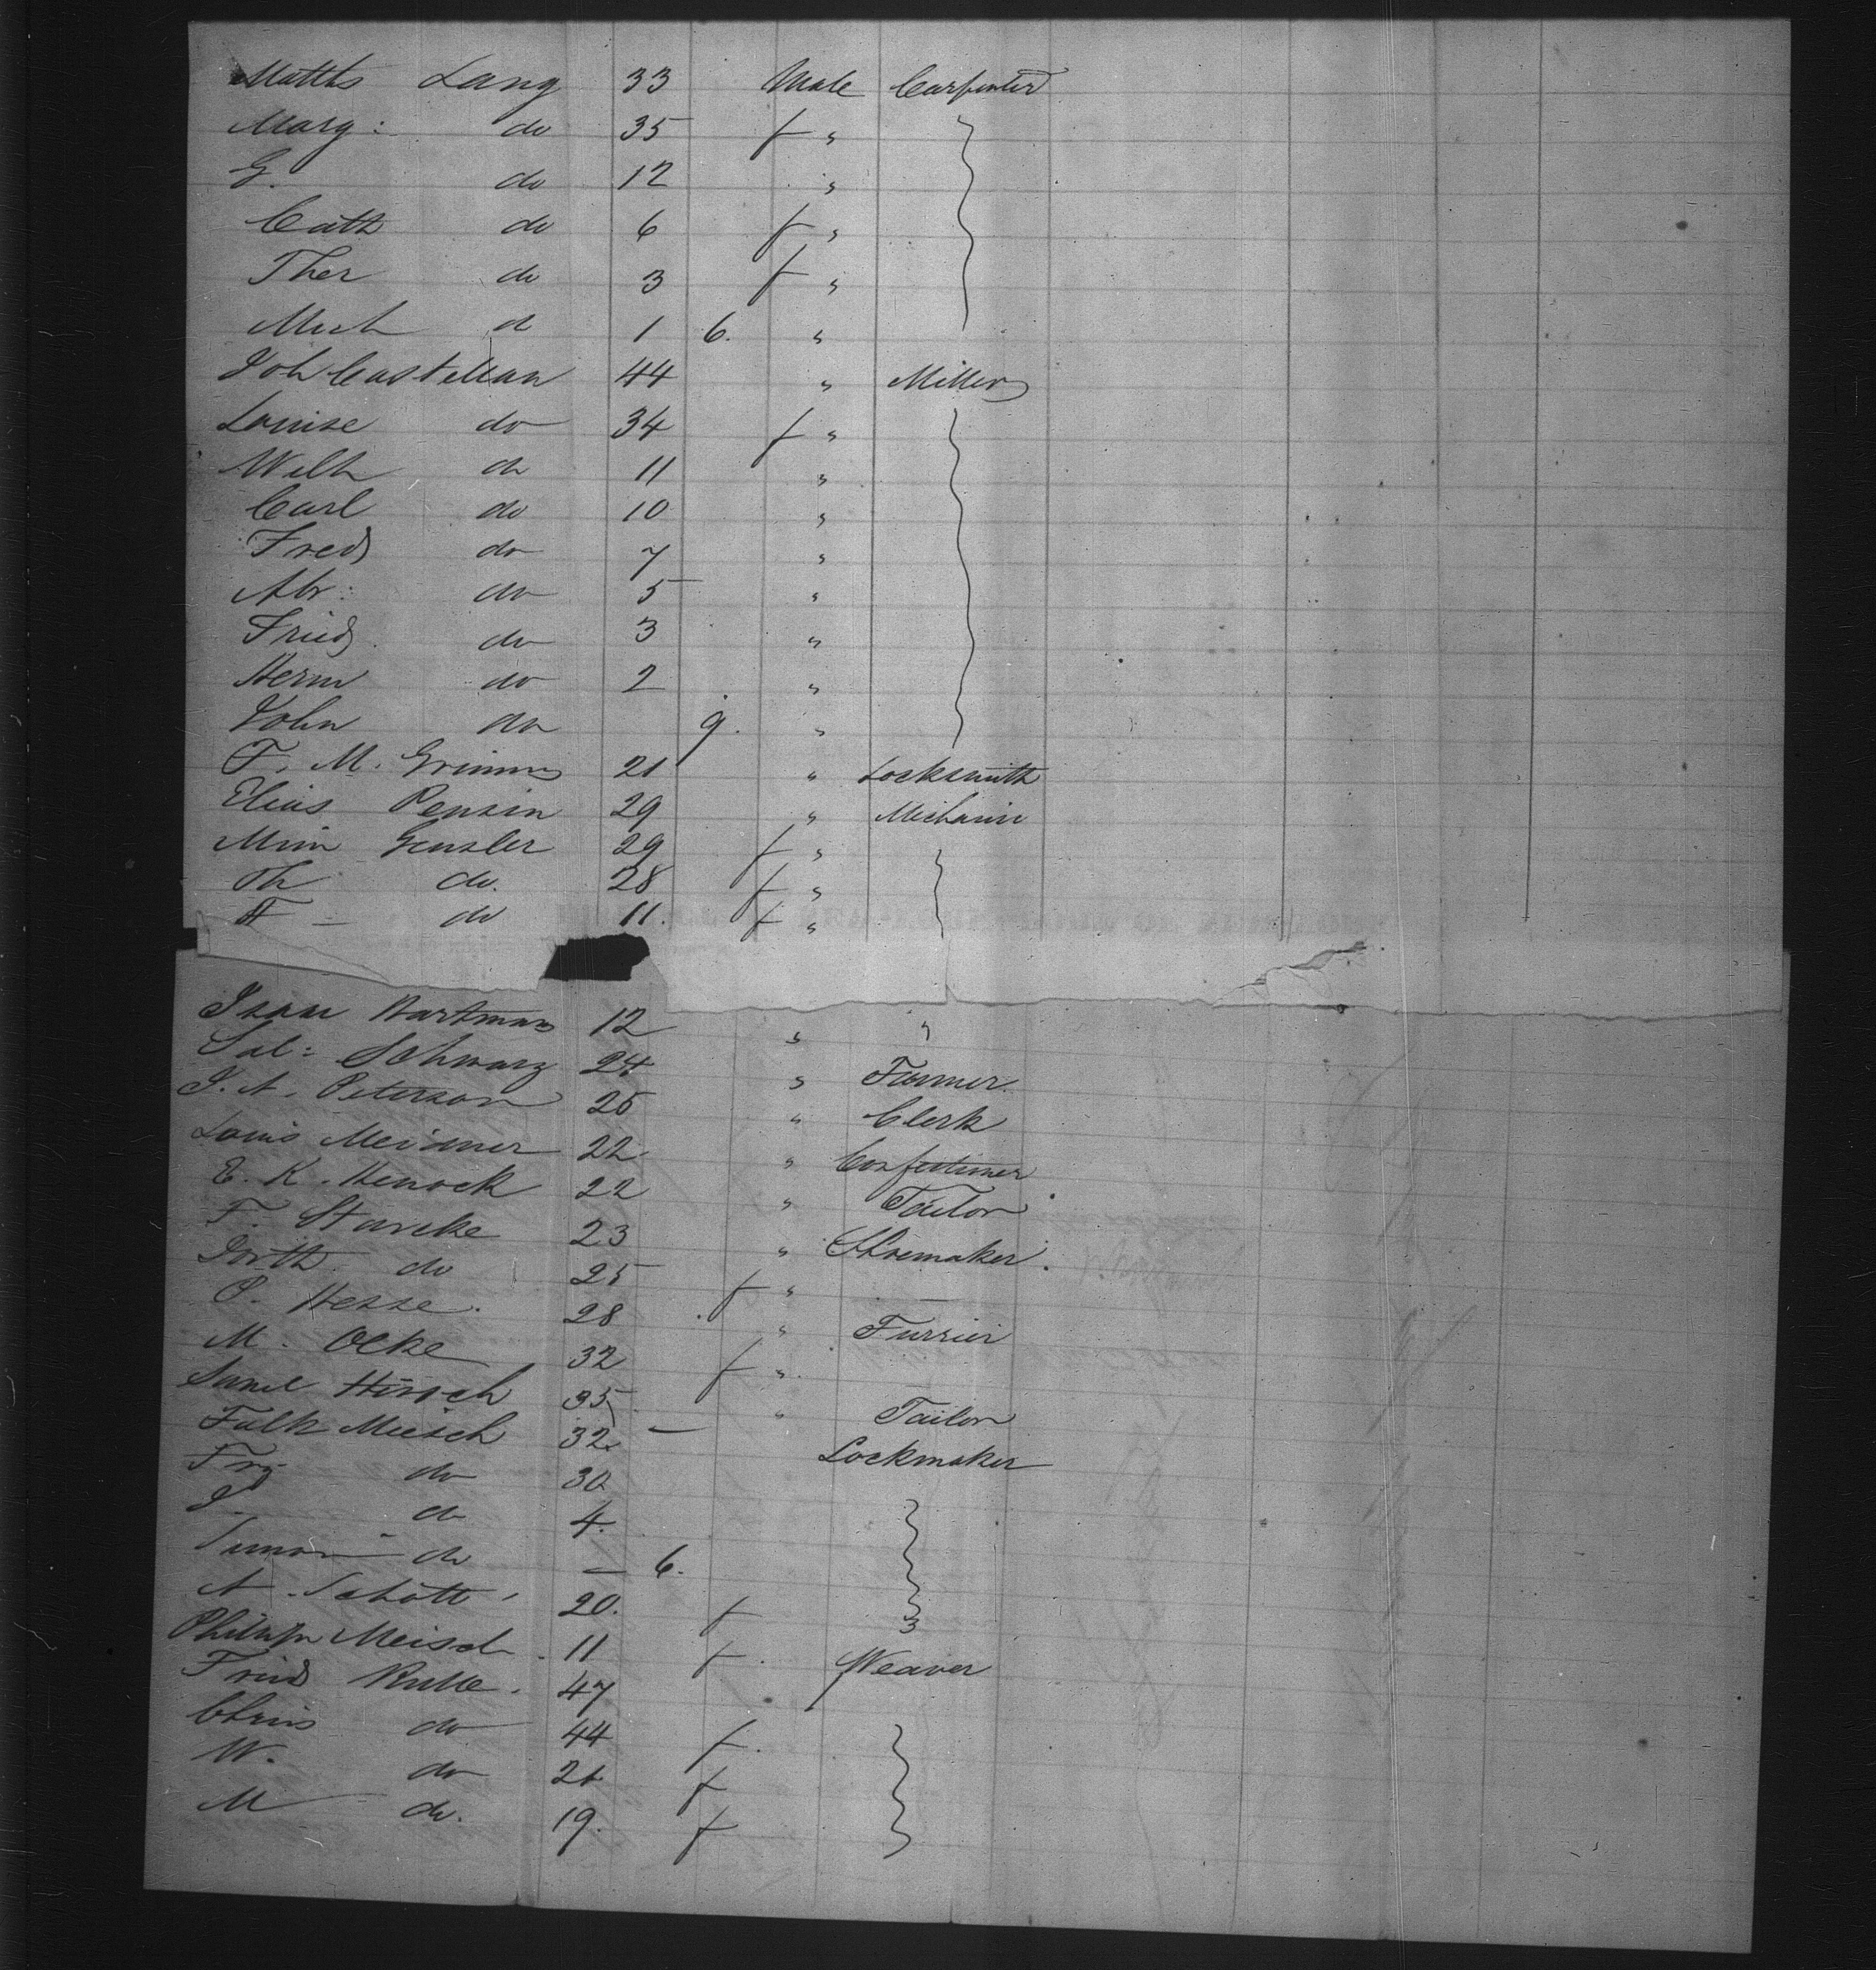 Matths Lang 33 Male Carpenter
Marg: do 35 f "
G. do 12 "
Cath do 6 f "
Ther do 3 f "
Mich d 1 6. "
Joh Castellan 44 " Miller
Louise do 34 f "
Wilh do 11 "
Carl do 10 "
Fred do 7 "
Abr: do 5 "
Fried. do 3 "
Herm do 2 "
John do 9. "
F. M. Grimm 21 " Locksmith
Elias Pensin 29 " Mechanic
Min Gensler 29 f "
Th do. 28 f "
F - do 11. f "
Isaac Hartman 12 " "
Sal: Schwarz 24 " Farmer.
J. A. Peterson 25 " Clerk
Louis Meidner 22 " Confectioner
E. K. Henock 22 " Tailor
F. Starcke 23 " Shoemaker.
Dorth. do 25 f " —
P. Hesse. 28 " Furrier
M. Ocke 32 f "
Saml Hirsch 35 " Tailor
Falk Miesch 32 — Lockmaker
do 30
J. do 4.
Simon do — 6.
A. Schott 20. f
Philipp Meisch 11 f. Weaver
Fried Rulle. 47
Chris do 44 f.
W. do 21 f
M do. 19. f